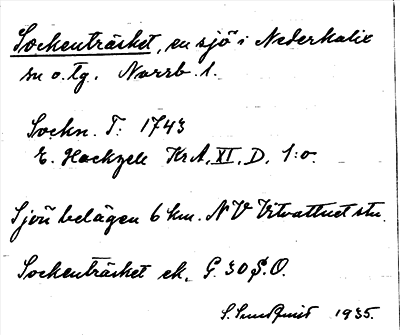 Sockenträsket, en sjö i Nederkalix
sn o. tg. Norrb. l.
Sockn. T: 1743
E. Hackzell KrA, XI, D, 1:o.
Sjön belägen 6 km. NV Vitvattnet stn.
Sockenträsket ek. G. 30 S.O.
S. Sundquist 1935.